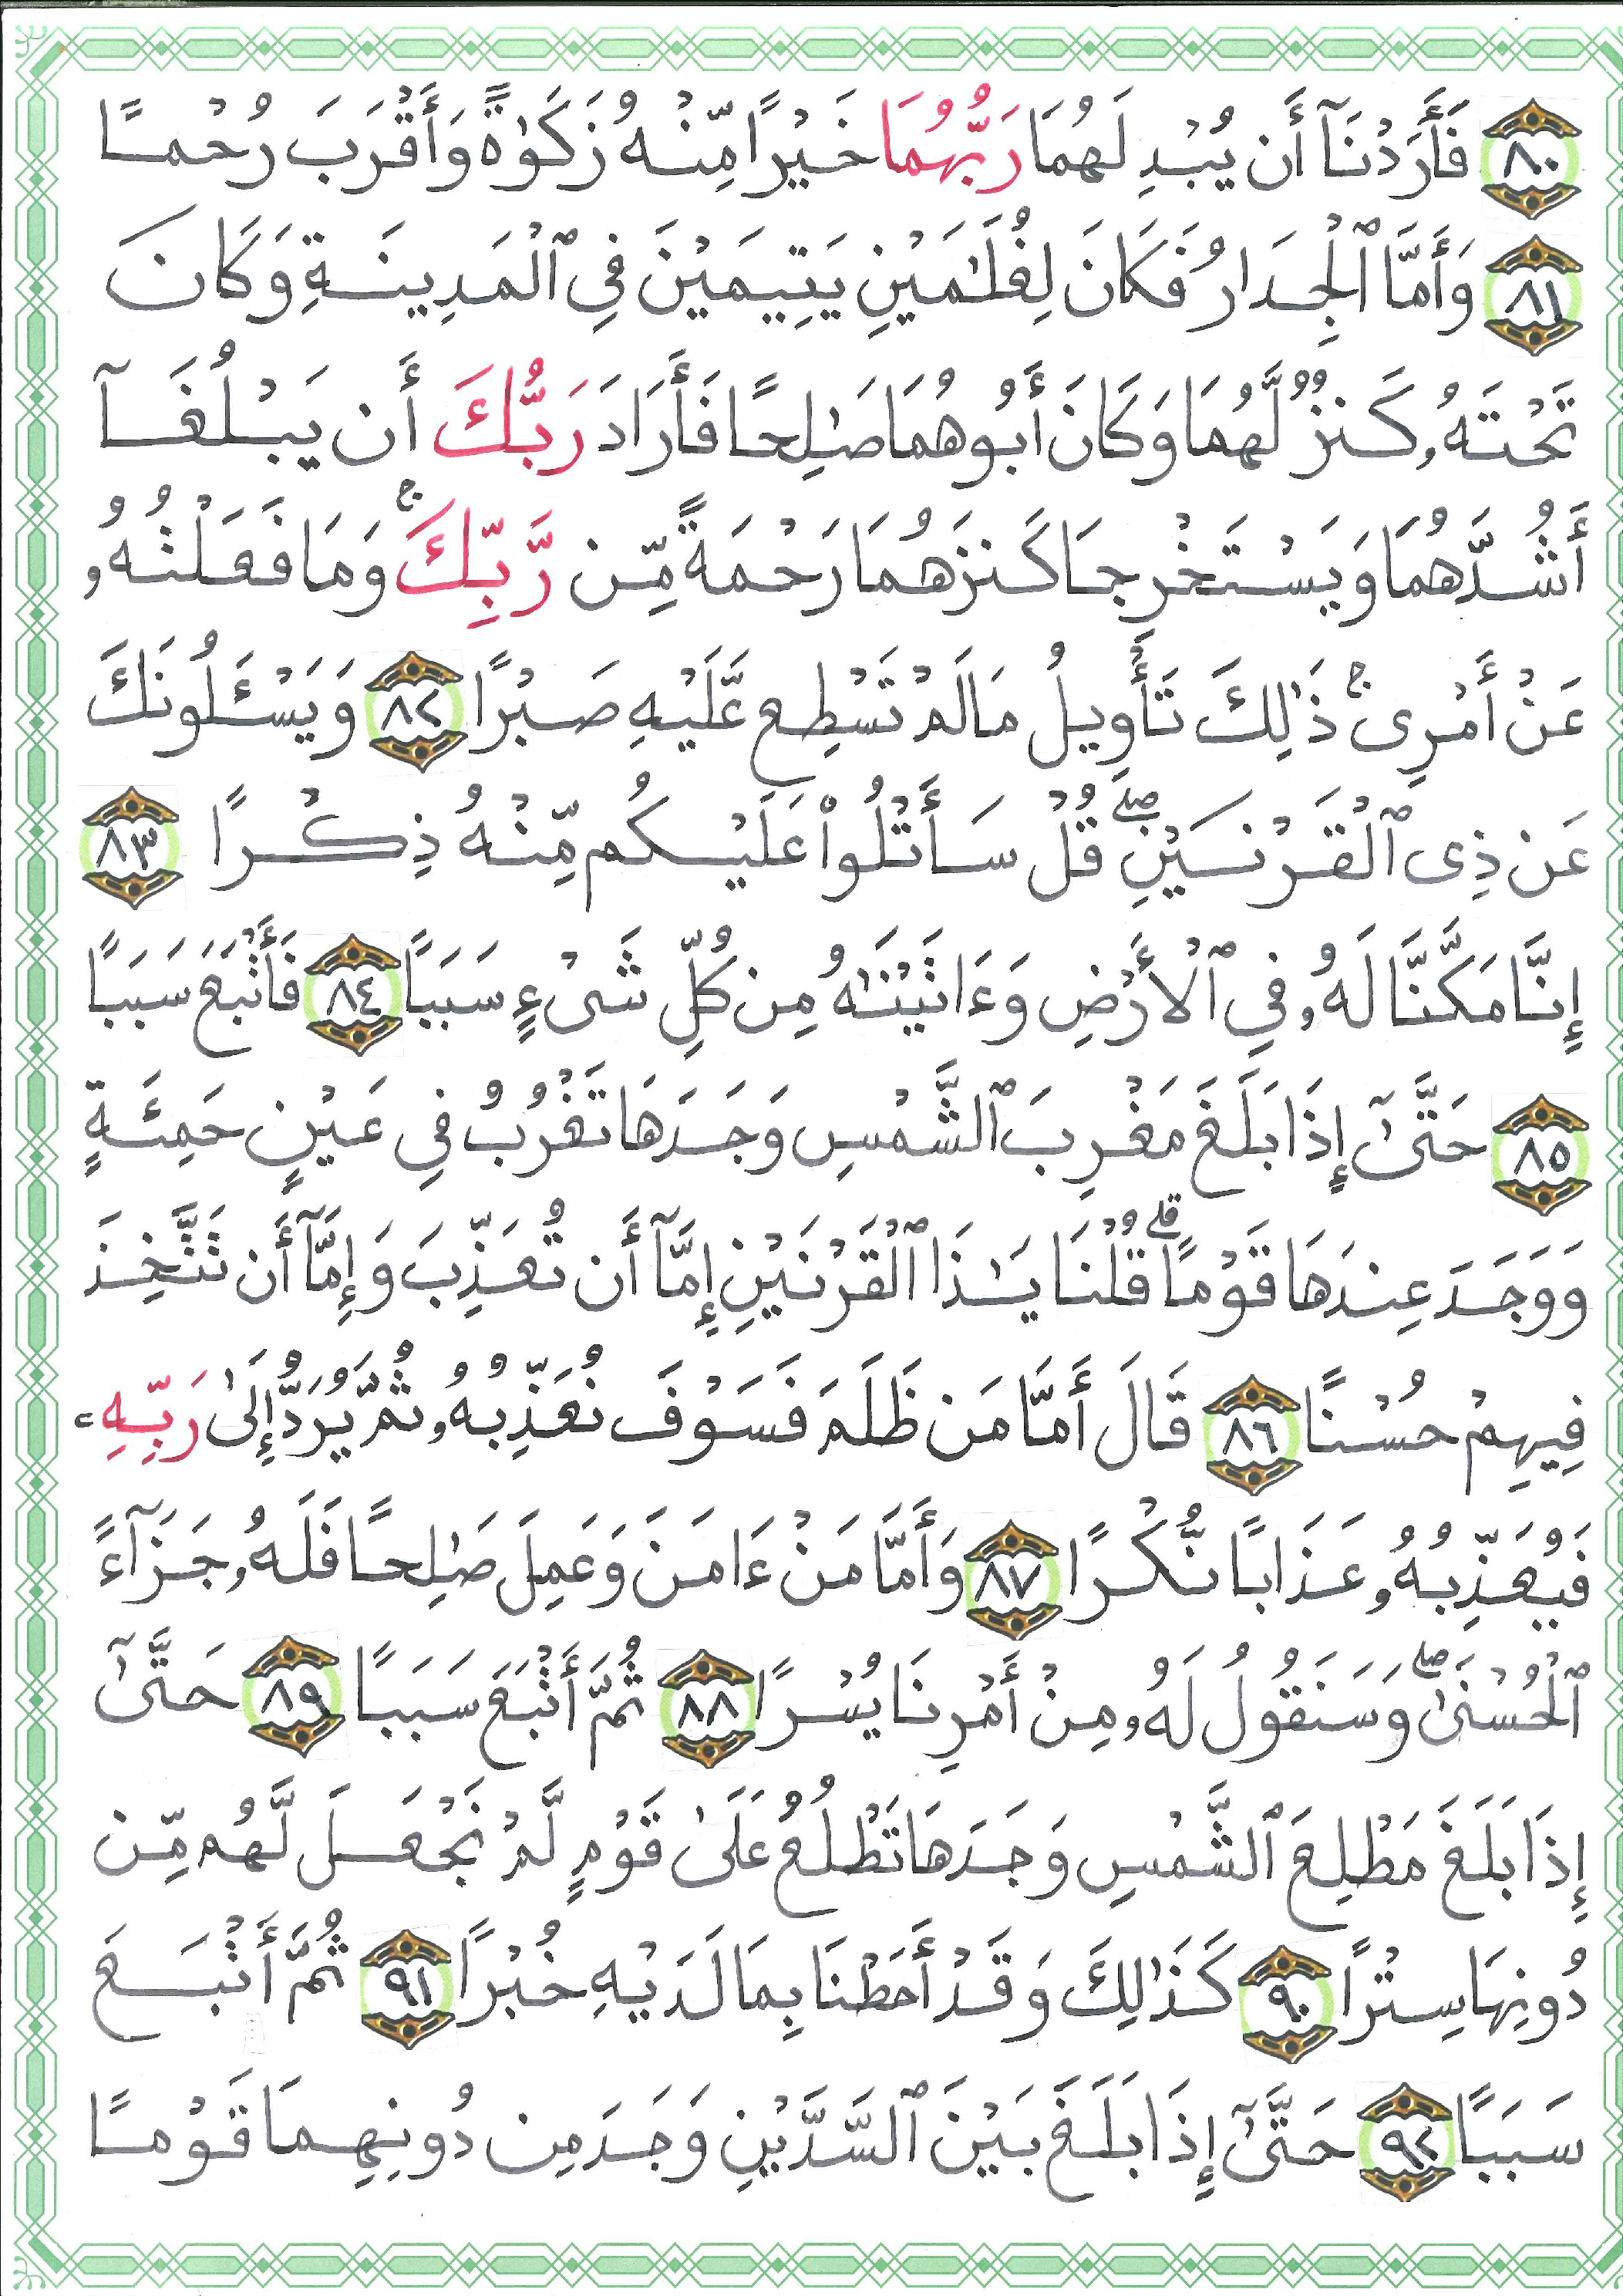 ٨٠ فَأَرَدْنَآ أَن يُبْدِ لَهُمَا رَبُّهُمَا خَيْرًا مِّنْهُ زَكَوٰةً وَأَقْرَبَ رُحْمًا
٨١ وَأَمَّا ٱلْجِدَارُ فَكَانَ لِغُلَٰمَيْنِ يَتِيمَيْنِ فِى ٱلْمَدِينَةِ وَكَانَ
تَحْتَهُۥ كَنزٌ لَّهُمَا وَكَانَ أَبُوهُمَا صَٰلِحًا فَأَرَادَ رَبُّكَ أَن يَبْلُغَآ
أَشُدَّهُمَا وَيَسْتَخْرِجَا كَنزَهُمَا رَحْمَةً مِّن رَّبِّكَ ۚ وَمَا فَعَلْتُهُۥ
عَنْ أَمْرِى ۚ ذَٰلِكَ تَأْوِيلُ مَا لَمْ تَسْطِع عَّلَيْهِ صَبْرًا ٨٢ وَيَسْـَٔلُونَكَ
عَن ذِى ٱلْقَرْنَيْنِ ۖ قُلْ سَأَتْلُوا۟ عَلَيْكُم مِّنْهُ ذِكْرًا ٨٣
إِنَّا مَكَّنَّا لَهُۥ فِى ٱلْأَرْضِ وَءَاتَيْنَٰهُ مِن كُلِّ شَىْءٍ سَبَبًا ٨٤ فَأَتْبَعَ سَبَبًا
٨٥ حَتَّىٰٓ إِذَا بَلَغَ مَغْرِبَ ٱلشَّمْسِ وَجَدَهَا تَغْرُبُ فِى عَيْنٍ حَمِئَةٍ
وَوَجَدَ عِندَهَا قَوْمًا ۗ قُلْنَا يَٰذَا ٱلْقَرْنَيْنِ إِمَّآ أَن تُعَذِّبَ وَإِمَّآ أَن تَتَّخِذَ
فِيهِمْ حُسْنًا ٨٦ قَالَ أَمَّا مَن ظَلَمَ فَسَوْفَ نُعَذِّبُهُۥ ثُمَّ يُرَدُّ إِلَىٰ رَبِّهِۦ
فَيُعَذِّبُهُۥ عَذَابًا نُّكْرًا ٨٧ وَأَمَّا مَنْ ءَامَنَ وَعَمِلَ صَٰلِحًا فَلَهُۥ جَزَآءً
ٱلْحُسْنَىٰ ۖ وَسَنَقُولُ لَهُۥ مِنْ أَمْرِنَا يُسْرًا ٨٨ ثُمَّ أَتْبَعَ سَبَبًا ٨٩ حَتَّىٰٓ
إِذَا بَلَغَ مَطْلِعَ ٱلشَّمْسِ وَجَدَهَا تَطْلُعُ عَلَىٰ قَوْمٍ لَّمْ نَجْعَل لَّهُم مِّن
دُونِهَا سِتْرًا ٩٠ كَذَٰلِكَ وَقَدْ أَحَطْنَا بِمَا لَدَيْهِ خُبْرًا ٩١ ثُمَّ أَتْبَعَ
سَبَبًا ٩٢ حَتَّىٰٓ إِذَا بَلَغَ بَيْنَ ٱلسَّدَّيْنِ وَجَدَ مِن دُونِهِمَا قَوْمًا